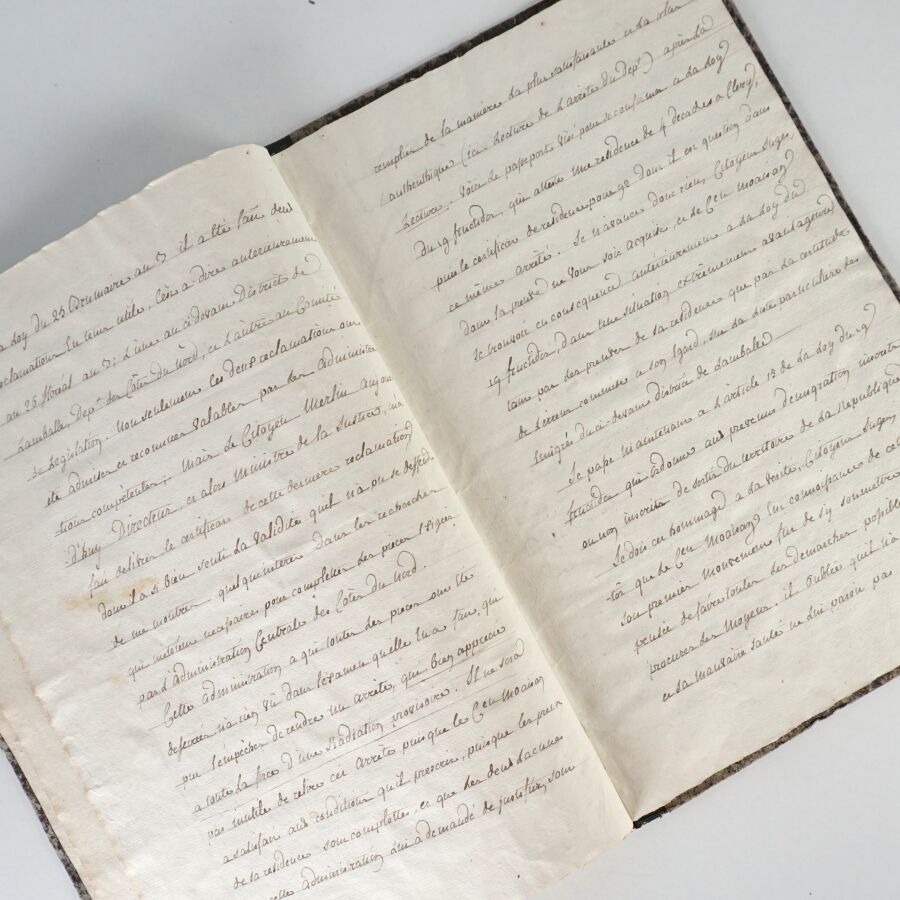 a Loy du 25 Brumaire an 3 il a été fait deux
réclamations En tems utile, C'est a dire anterieurement
au 25 floréal an 3; L'une au ci devant District de
Lamballe, Dept des Côtes du Nord, et L'autre au Comité
de Législation. non seulement Ces deux reclamations ont
été admises et reconnues valables par les administra
tions compétentes, mais Le Citoyen Merlin aujour
d'huy Directeur, et alors Ministre de la Justice, m'a
fait délivrer Le certificat de cette derniere réclamation
dont il a si bien senti La validité qu'il n'a pu se deffendre
de me montrer quelqu'interet dans les recherches
qui m'étoient necessaires pour completter les pieces Exigées
par L'administration Centrale des Côtes du Nord.
Cette administration a qui toutes Les pieces ont été
deferées n'a rien vû dans L'examen qu'elle En a fait, qui
put L'empêcher de rendre un arrêté, qui bien apprécié
a toute La force d'une Radiation provisoire. Il ne sera
pas inutile de relire cet arrêté puisque Le Cen Moaisan
a satisfait aux conditions qu'il prescrit, puisque Les preuves
de sa residence sont complettes, et que Les deux Lacunes
cette administration lui a demandé de justifier, sont
remplies de la maniere La plus satisfaisante et La plus
authentique (ici Lecture de L'arrêté du Dept) après La
Lecture. Voici Le passeport visé pour se conformer a La Loy
Du 19 fructidor, qui atteste Une residence de 4 Decades a Clery,
puis Le certificat de residence pour 92 dont il est question dans
ce même arrêté. Je n'avance donc rien, Citoyens Juges,
dont La preuve ne Vous soit acquise, et Le Cen Moaisan
se trouvoit en consequence anterieurement a La Loy du
19 fructidor, dans Une situation extrêmement avantageuse
tant par Les preuves de sa residence que par La certitude
de L'erreur commise a son Egard, sur La Liste particuliere des
Emigrés du ci-devant District de Lamballe.
Je passe maintenant a L'article 15 de La Loy du 19
fructidor qui ordonne aux prevenus d'emigration inscrits
ou non inscrits de sortir du territoire de La Republique
Je dois cet hommage a La verité, Citoyens Juges,
-tôt que Le Cen Moaisan En connoissance de cette
son premier mouvement fut de s'y soumettre
pensée de faire toutes Les demarches possibles
procurer Les moyens. il oublie qu'il n'a
et sa mauvaise santé ne Lui paroit pas